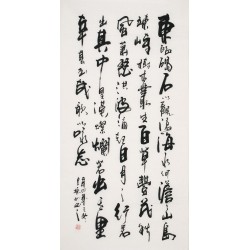 東臨碣石以觀滄海水何澹澹山島
竦峙樹木叢生百草豐茂秋
風蕭瑟洪波涌起日月之行若
出其中星漢燦爛若出其里
幸甚至哉歌以詠志